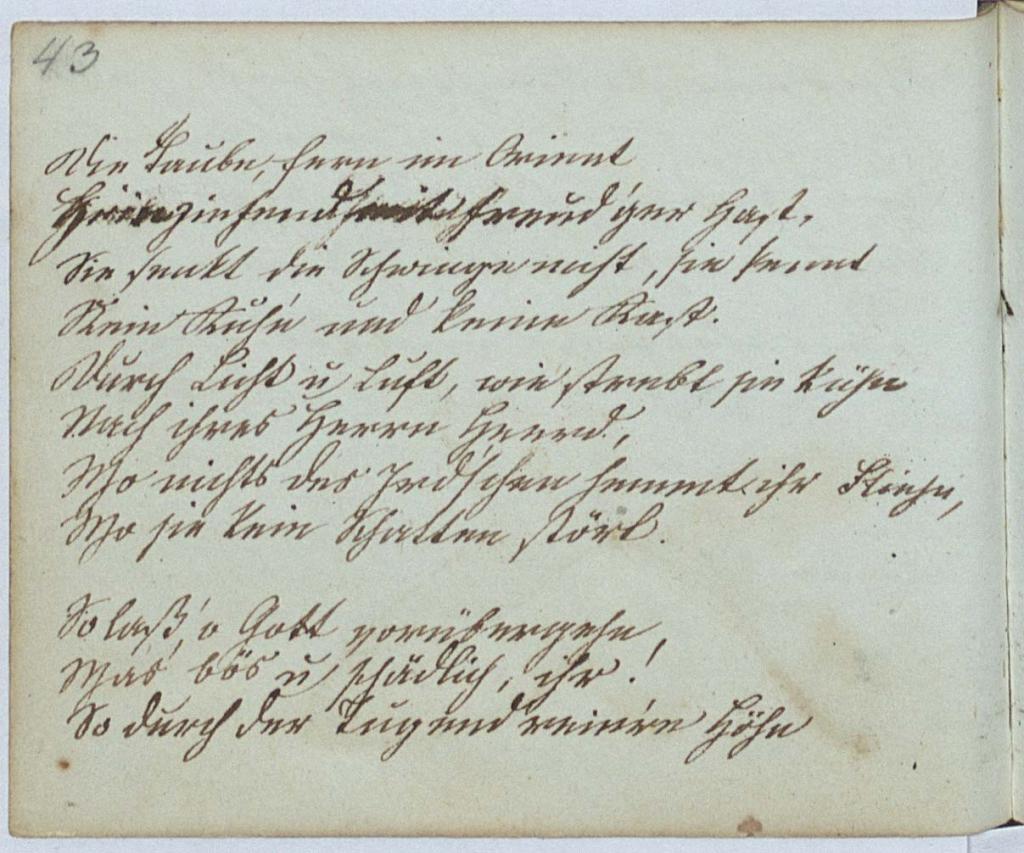 43
Die Taube, fern im Orient
ziehend mit freud'ger Hast,
Sie senkt die Schwinge nicht, sie kennt
Kein Ruh'n und keine Rast.
Durch Licht u Luft, wie strebt sie kühn
Nach ihres Herrn Heerd,
Wo nichts des Ird'schen hemmt ihr Fliehn,
Wo sie kein Schatten stört.
So laß', o Gott vorübergehn,
Was bös u schädlich, ihr!
So durch der Tugend rein're Höhn